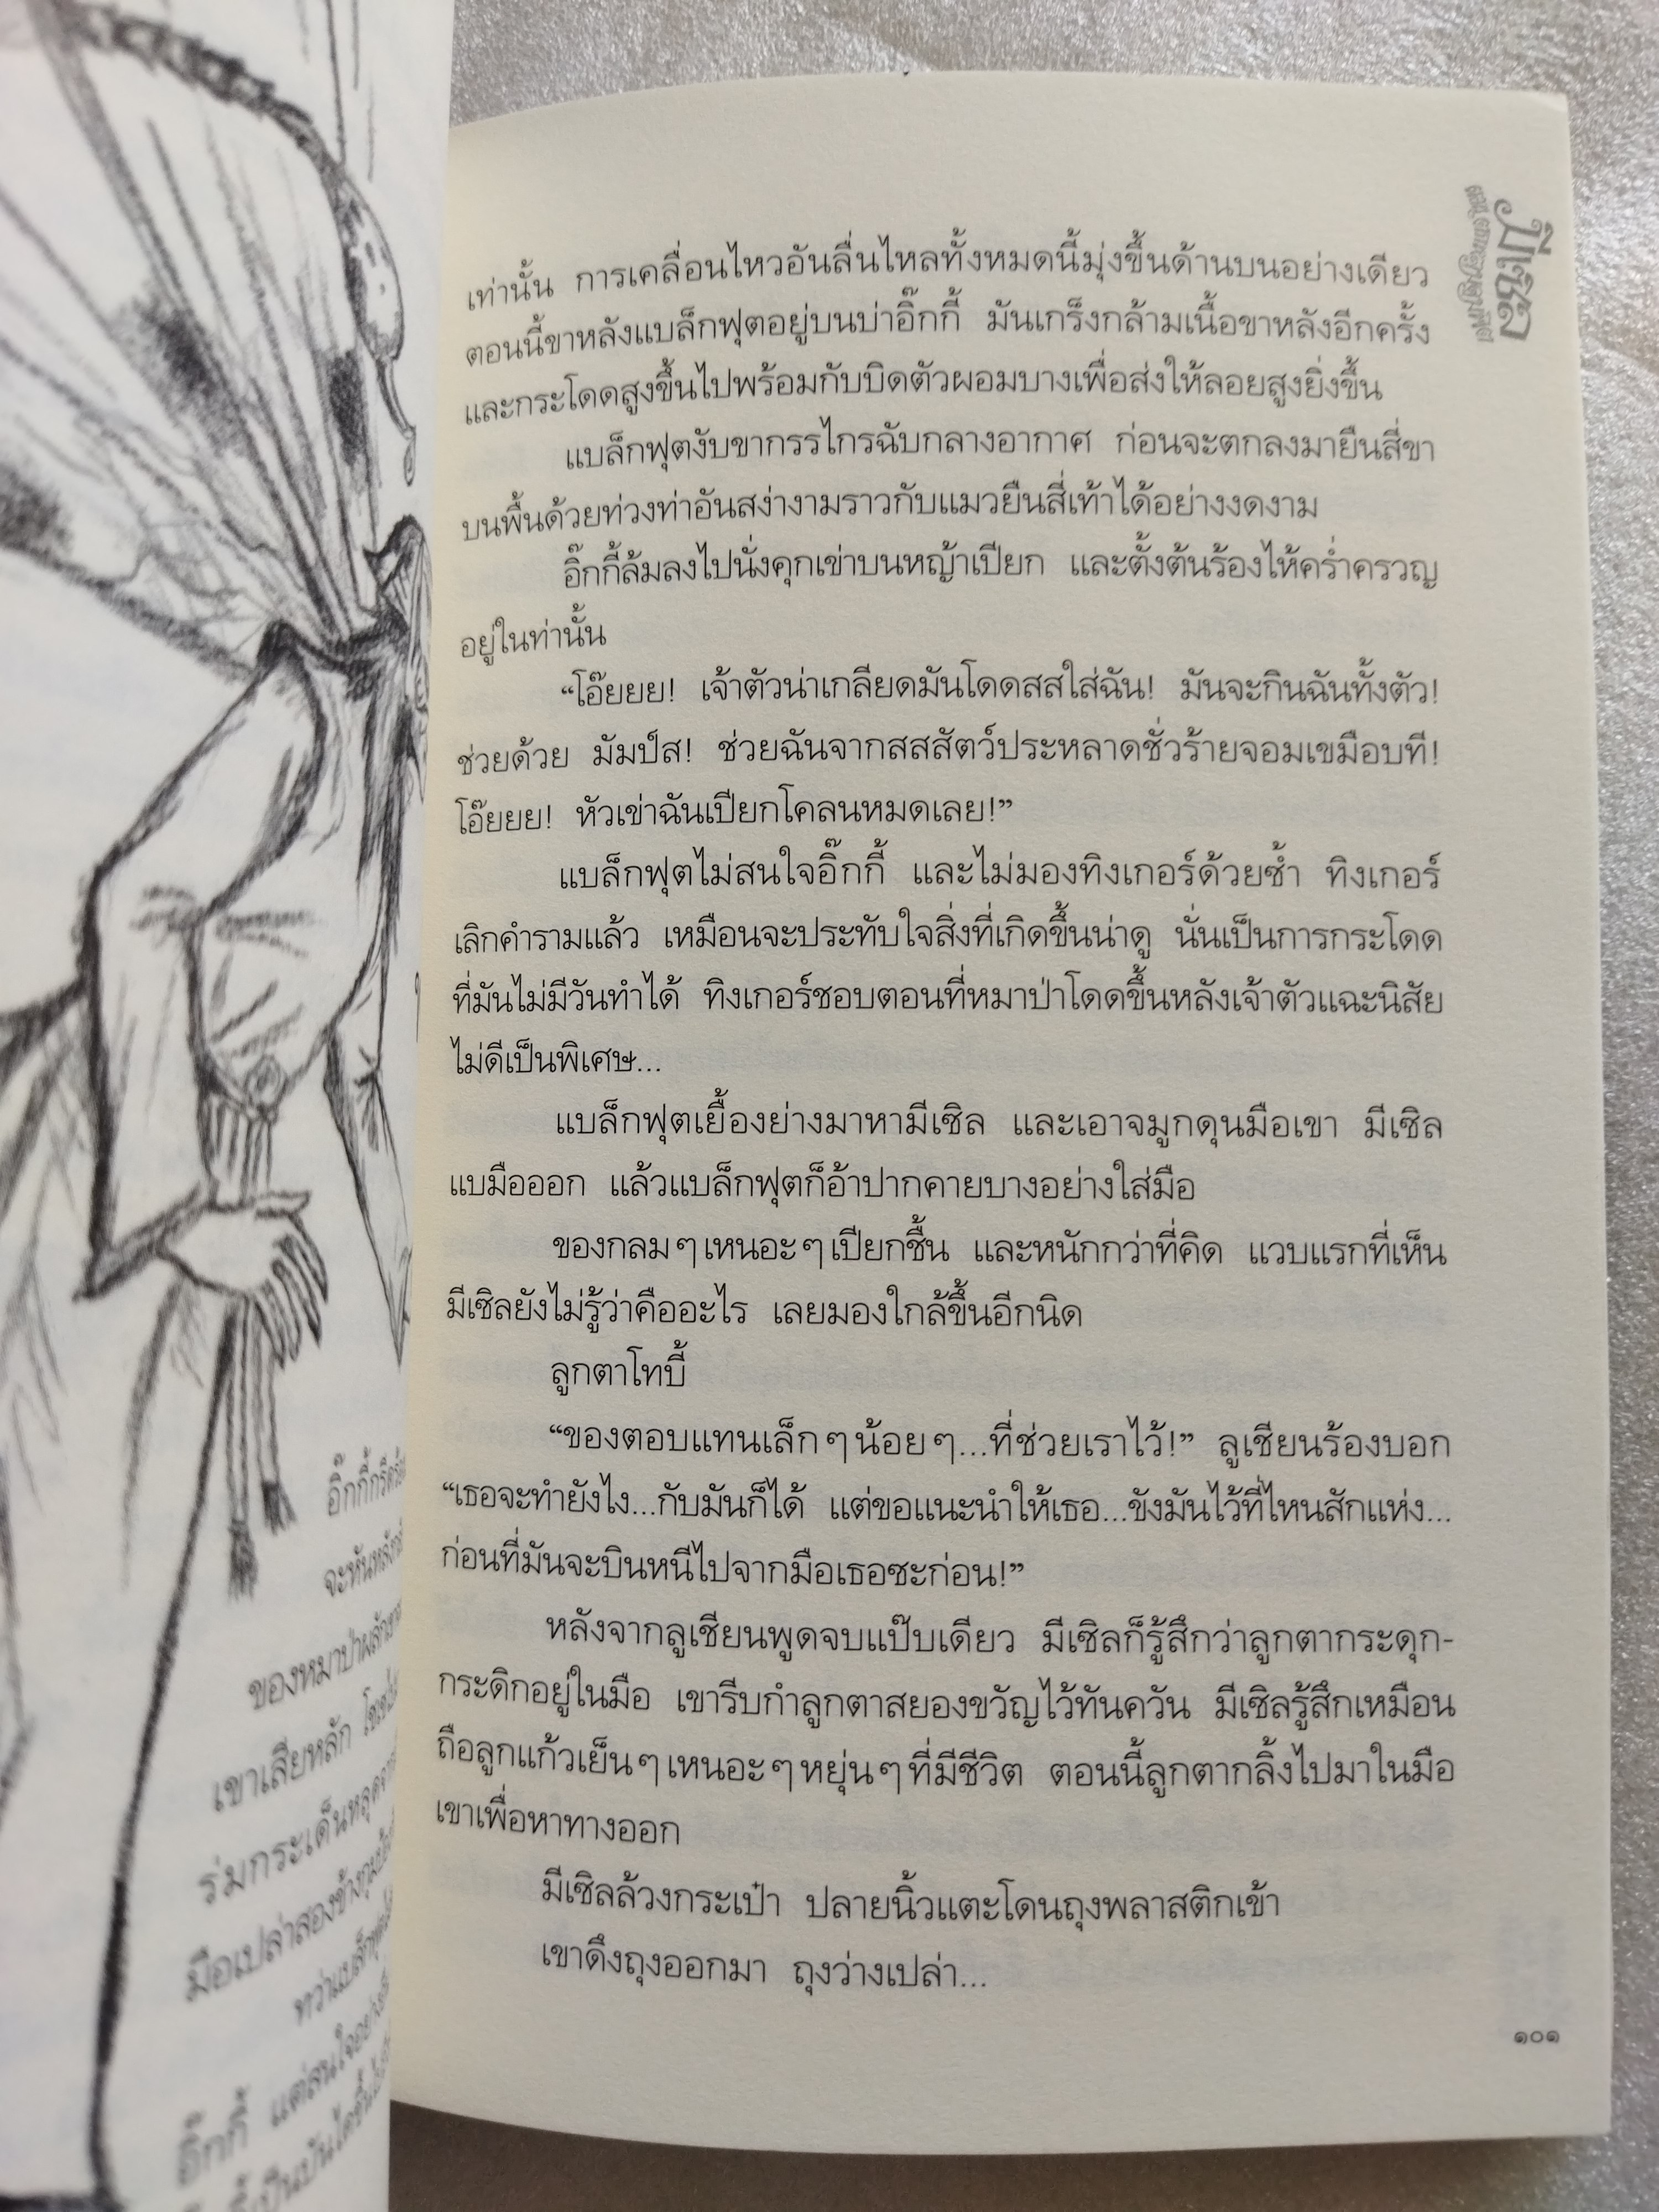 อิ๊กกี้กรีดร้อง
จะทันหลัง
ของหมาป่าผลัก
เขาเสียหลัก
ร่มกระเด็นหลุดจาก
มือเปล่าสองข้างกุม
ทว่าแบล็กฟุต
แต่สนใจอย่าง
อิ๊กกี้
เป็นบันไดขึ้น
มีเซิล
เท่านั้น การเคลื่อนไหวอันลื่นไหลทั้งหมดนี้มุ่งขึ้นด้านบนอย่างเดียว
ตอนนี้ขาหลังแบล็กฟุตอยู่บนบ่าอิ๊กกี้ มันเกร็งกล้ามเนื้อขาหลังอีกครั้ง
และกระโดดสูงขึ้นไปพร้อมกับบิดตัวผอมบางเพื่อส่งให้ลอยสูงยิ่งขึ้น
แบล็กฟุตงับขากรรไกรฉับกลางอากาศ ก่อนจะตกลงมายืนสี่ขา
บนพื้นด้วยท่วงท่าอันสง่างามราวกับแมวยืนสี่เท้าได้อย่างงดงาม
อิ๊กกี้ล้มลงไปนั่งคุกเข่าบนหญ้าเปียก และตั้งต้นร้องไห้คร่ำครวญ
อยู่ในท่านั้น
“โอ๊ยยย! เจ้าตัวน่าเกลียดมันโดดสสใส่ฉัน! มันจะกินฉันทั้งตัว!
ช่วยด้วย มัมป์ส! ช่วยฉันจากสสสัตว์ประหลาดชั่วร้ายจอมเขมือบที!
โอ๊ยยย! หัวเข่าฉันเปียกโคลนหมดเลย!”
แบล็กฟุตไม่สนใจอิ๊กกี้ และไม่มองทิงเกอร์ด้วยซ้ำ ทิงเกอร์
เลิกคำรามแล้ว เหมือนจะประทับใจสิ่งที่เกิดขึ้นน่าดู นั่นเป็นการกระโดด
ที่มันไม่มีวันทำได้ ทิงเกอร์ชอบตอนที่หมาป่าโดดขึ้นหลังเจ้าตัวแฉะนิสัย
ไม่ดีเป็นพิเศษ...
แบล็กฟุตเยื้องย่างมาหามีเซิล และเอาจมูกดุนมือเขา มีเซิล
แบมือออก แล้วแบล็กฟุตก็อ้าปากคายบางอย่างใส่มือ
ของกลมๆเหนอะๆเปียกชื้น และหนักกว่าที่คิด แวบแรกที่เห็น
มีเซิลยังไม่รู้ว่าคืออะไร เลยมองใกล้ขึ้นอีกนิด
ลูกตาโทบี้
“ของตอบแทนเล็กๆน้อยๆ...ที่ช่วยเราไว้!” ลูเชียนร้องบอก
“เธอจะทำยังไง...กับมันก็ได้ แต่ขอแนะนำให้เธอ...ขังมันไว้ที่ไหนสักแห่ง...
ก่อนที่มันจะบินหนีไปจากมือเธอซะก่อน!”
หลังจากลูเชียนพูดจบแป๊บเดียว มีเซิลก็รู้สึกว่าลูกตากระดุก-
กระดิกอยู่ในมือ เขารีบกำลูกตาสยองขวัญไว้ทันควัน มีเซิลรู้สึกเหมือน
ถือลูกแก้วเย็นๆเหนอะๆหยุ่นๆที่มีชีวิต ตอนนี้ลูกตากลิ้งไปมาในมือ
เขาเพื่อหาทางออก
มีเซิลล้วงกระเป๋า ปลายนิ้วแตะโดนถุงพลาสติกเข้า
เขาดึงถุงออกมา ถุงว่างเปล่า...
๑๐๑